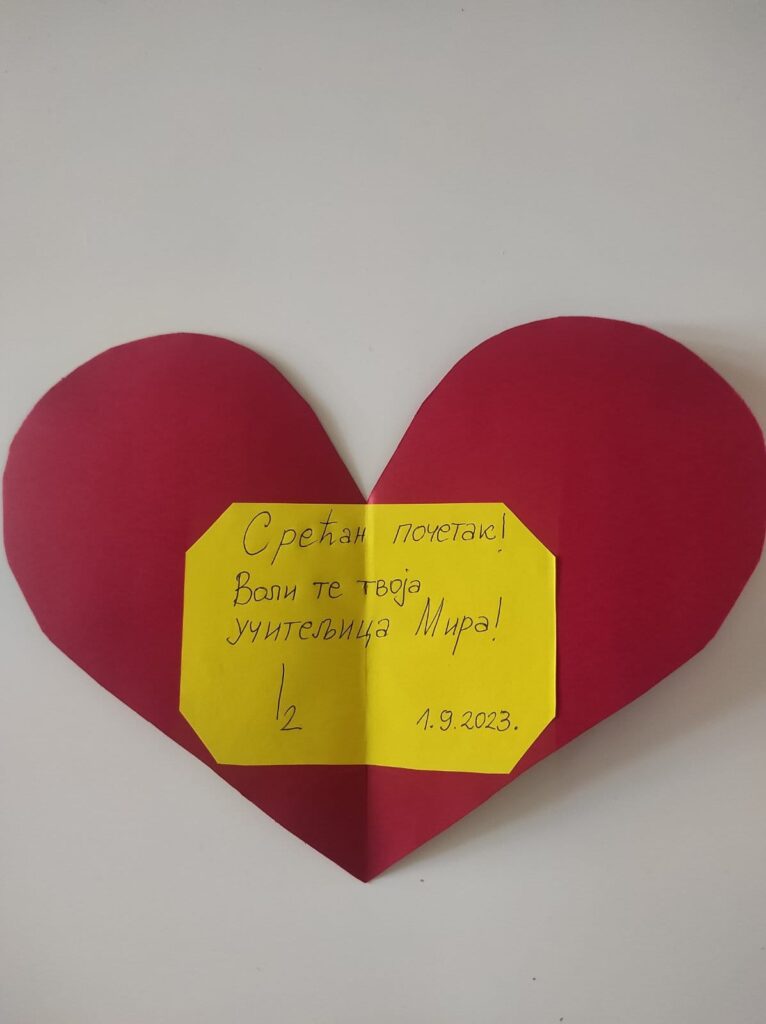 Срећан почетак!
Воли те твоја
учитељица Мира!
I2 1.9.2023.